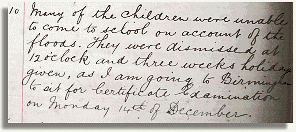 10 Many of the children were unable
to come to school on account of the
floods. They were dismissed at
12 o'clock and three weeks holiday
given, as I am going to Birmingham
to sit for Certificate Examination
on Monday 14th of December.